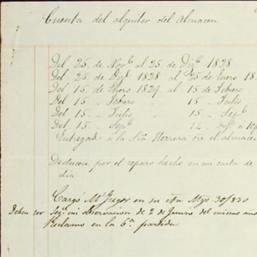 Cuenta del alquiler del almacen
Del 25 de Nov.e al 25 de Dic.e 1828
Del 25 de Dic.e 1828 al 25 de Enero 18
Del 15 de Enero 1829 al 15 de Febrero
Del 15 " Febrero " 15 " Julio
Del 15 " Julio " 15 " Sep.e
Del 15 " Sep.e 14
Entregado a la Sra
Deduccion por el reparo hecho en mi carta de
dia
Cargo Mr Gregor en su c/ta Myo 30/830
Deben ser seg.n mi observacion de 2 de Junio del mismo ano
Reclamo en la 5.a partida